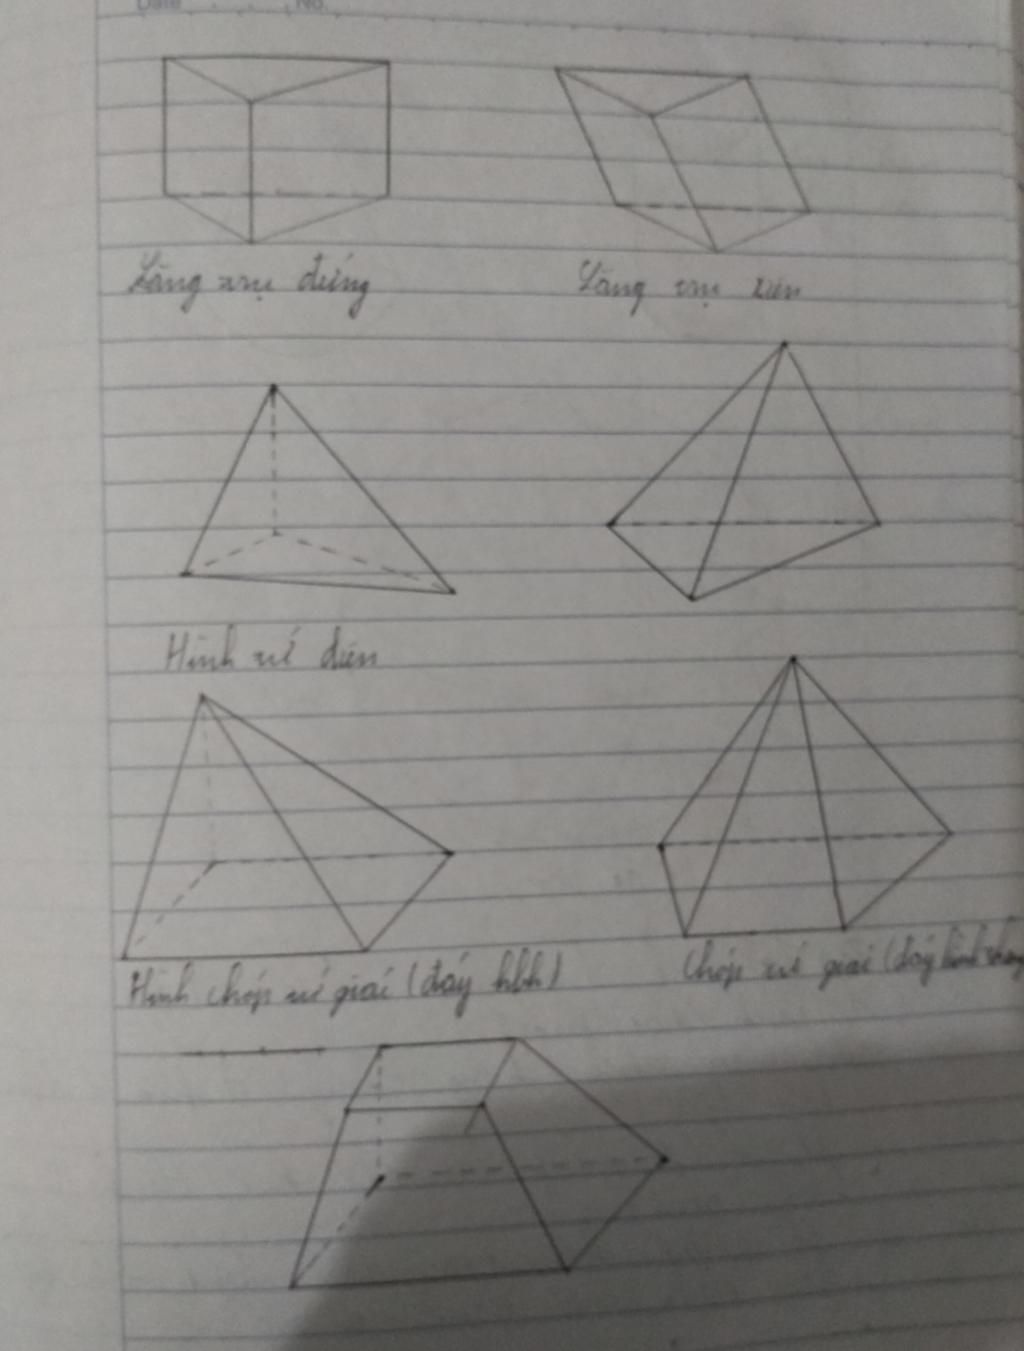 Date No.
Lăng trụ đứng
Lăng trụ xiên
Hình tứ diện
Hình chóp tứ giác (đáy hbh)
Chóp tứ giác (đáy hình thang